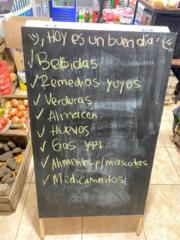 ¡Hoy es un buen día!
✓ Bebidas
✓ Remedios yuyos
✓ Verduras
✓ Almacen
✓ Huevos
✓ Gas YPF
✓ Alimentos p/mascotas
✓ Medicamentos